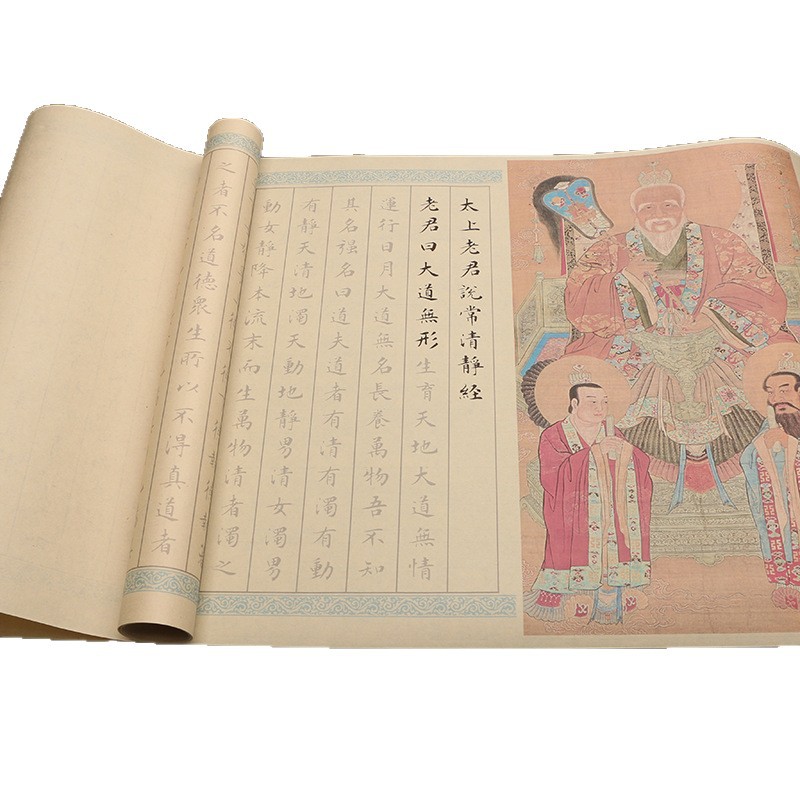 太上老君說常清靜経
老君曰大道無形生育天地大道無情
運行日月大道無名長養萬物吾不知
其名强名曰道夫道者有清有濁有動
有靜天清地濁天動地靜男清女濁男
動女靜降本流末而生萬物清者濁之
之者不名道德衆生所以不得真道者